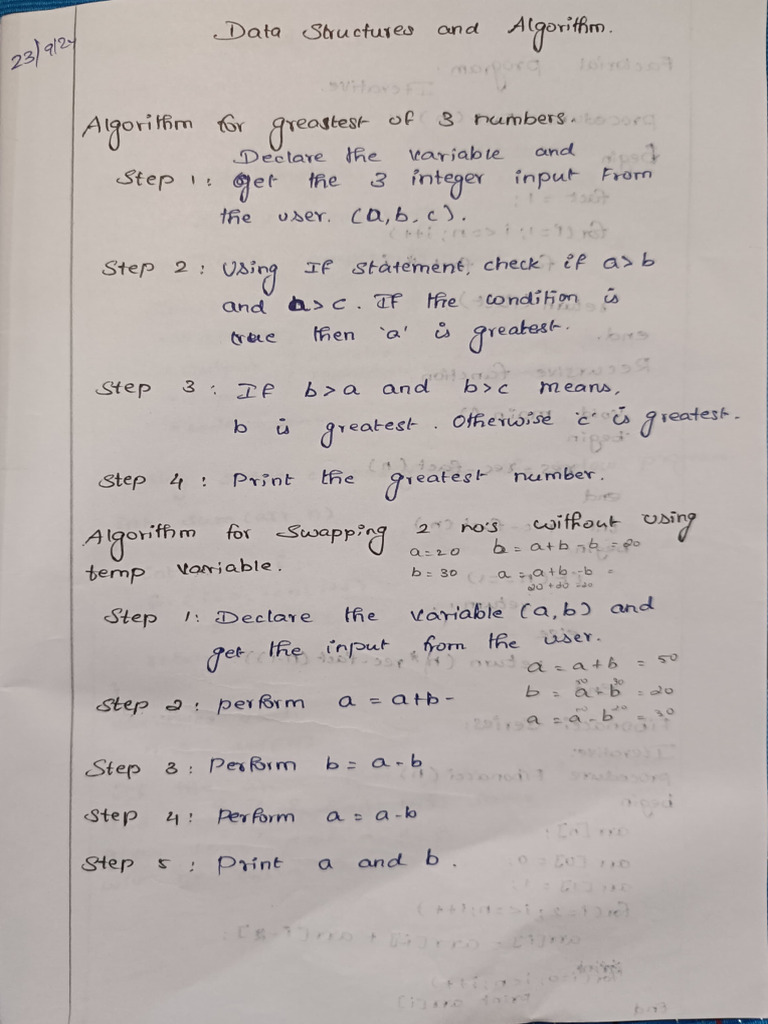 23/9/24
Data Structures and Algorithm.
Algorithm for greastest of 3 numbers.
Declare the variable and
Step 1: get the 3 integer input from
the user. (a,b,c).
Step 2: Using If statement, check if a>b
and a>c. If the condition is
true then 'a' is greatest.
Step 3: If b>a and b>c means,
b is greatest. Otherwise 'c' is greatest.
Step 4: Print the greatest number.
Algorithm for Swapping 2 no's without using
temp variable.
a=20 b=a+b-b=20
b=30 a=a+b-b=
Step 1: Declare the variable (a,b) and
get the input from the user.
a=a+b=50
Step 2: perform a=a+b-
b=a-b=20
a=a-b=30
Step 3: Perform b=a-b
Step 4: Perform a=a-b
Step 5: Print a and b.